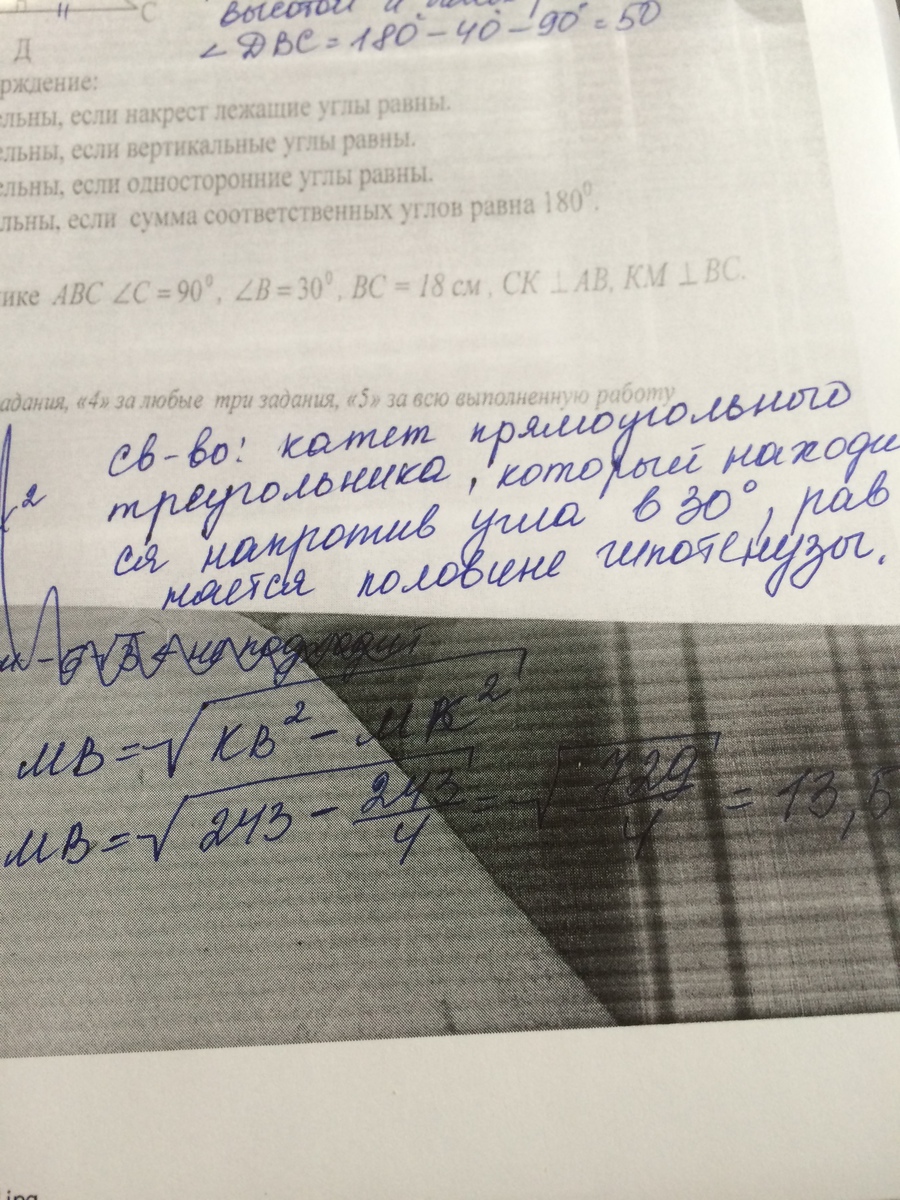 С
Д
высотой и
∠ДВС = 180° – 40° – 90° = 50
рждение:
ельны, если накрест лежащие углы равны.
ельны, если вертикальные углы равны.
ельны, если односторонние углы равны.
льны, если сумма соответственных углов равна 180⁰.
ике ABC ∠C = 90⁰, ∠B = 30⁰, BC = 18 см, CK ⊥ AB, KM ⊥ BC.
адания, «4» за любые три задания, «5» за всю выполненную работу
св-во: катет прямоугольного
треугольника, который находи
2
ся напротив угла в 30°, рав
няется половине гипотенузы.
не подходит
МВ = √КВ² – МК²
МВ = √243 – 243/4 = √729/4 = 13,5
.jpg